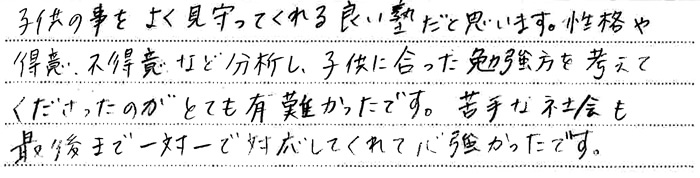 子供の事をよく見守ってくれる良い塾だと思います。性格や
得意、不得意など分析し、子供に合った勉強方を考えて
くださったのがとても有難かったです。苦手な社会も
最後まで一対一で対応してくれて心強かったです。